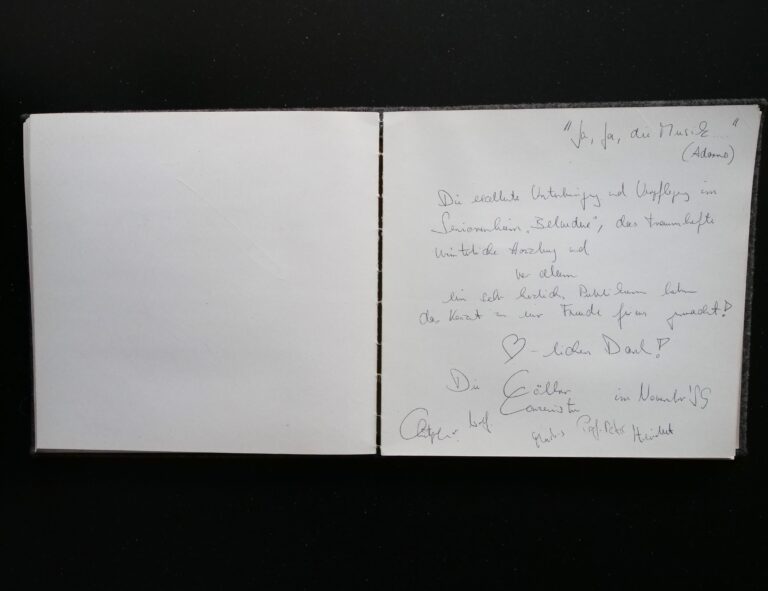 "Ja, ja, die Musik...."
(Adorno)
Die exallente Unterbringung und Verpflegung im
Seniorenheim „Belvedere“, das traumhafte
winterliche Harzburg und
vor allem
ein sehr herzliches Publikum haben
das Konzert zu einer Freude für uns gemacht!
♡-lichen Dank!
Die Cöllner im November '99
Wolf. Prof. Peter